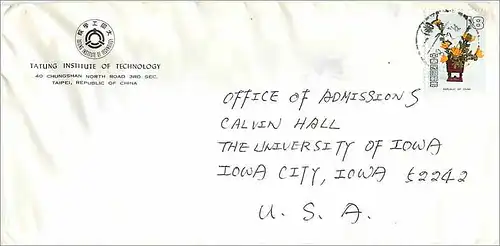 TATUNG INSTITUTE OF TECHNOLOGY
40 CHUNGSHAN NORTH ROAD 3RD SEC.
TAIPEI, REPUBLIC OF CHINA
8
REPUBLIC OF CHINA
OFFICE OF ADMISSIONS
CALVIN HALL
THE UNIVERSITY OF IOWA
IOWA CITY, IOWA 52242
U. S. A.